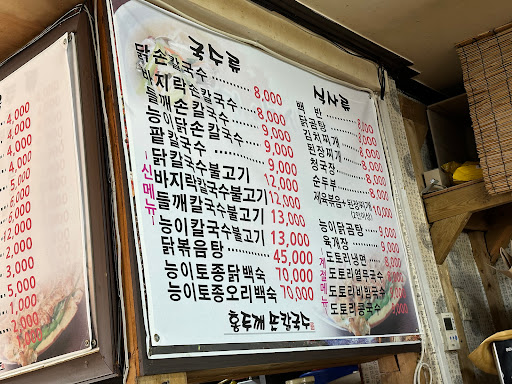 국수류
닭손칼국수 ........ 8,000
바지락칼국수 .... 8,000
들깨손칼국수 .... 9,000
능이닭손칼국수 .. 9,000
팥칼국수 ............ 9,000
-신메뉴-
닭칼국수불고기 12,000
바지락칼국수불고기 12,000
들깨칼국수불고기 13,000
능이칼국수불고기 13,000
닭볶음탕 ........ 45,000
능이토종닭백숙 70,000
능이토종오리백숙 70,000
식사류
백반 ........ 8,000
닭곰탕 ........ 8,000
김치찌개 ........ 8,000
된장찌개 ........ 8,000
청국장 ........ 8,000
순두부 ........ 8,000
제육볶음+된장찌개 10,000
(2인이상)
능이닭곰탕 .... 9,000
육개장 ........ 9,000
계절메뉴
도토리냉면 .... 8,000
도토리열무국수
도토리비빔국수
도토리콩국수 .. 9,000
4,000
4,000
4,000
4,000
5,000
6,000
6,000
2,000
3,000
5,000
5,000
,000
,000